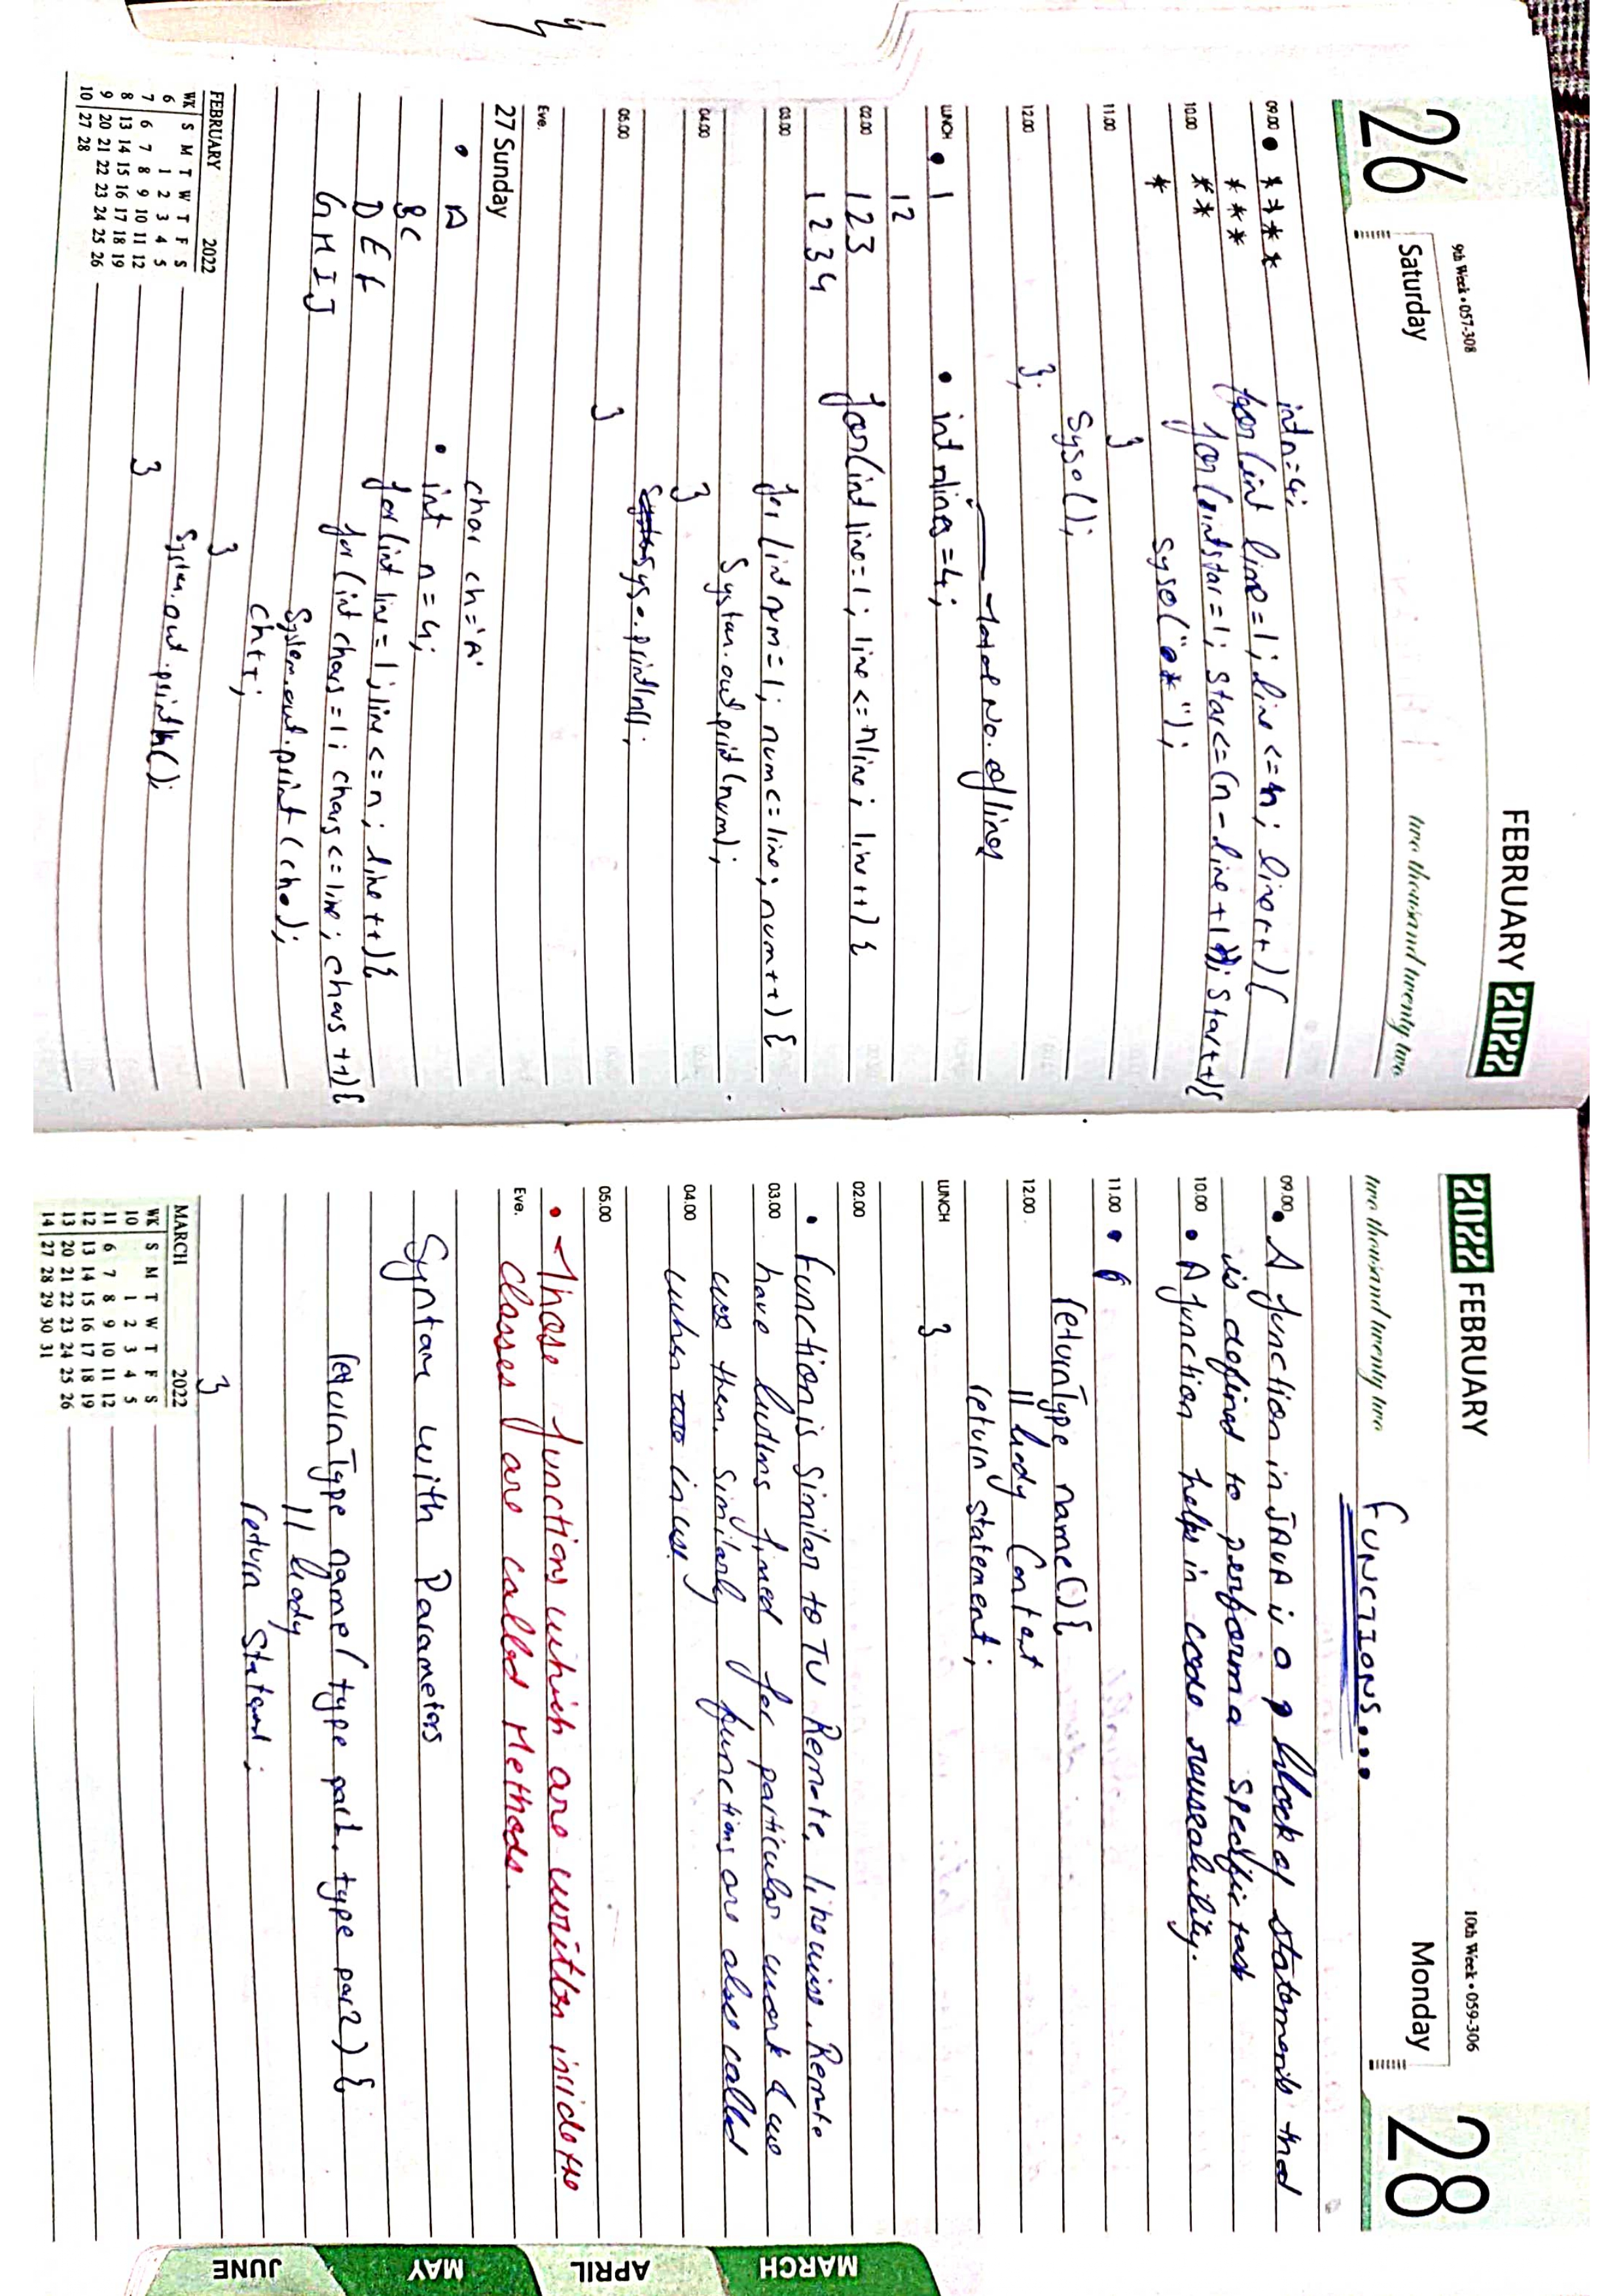 FEBRUARY 2022
9th Week • 057-308
26
Saturday
two thousand twenty two
int n=4;
• ****
for (int line=1; line <=n; line++) {
***
for (int star=1; star<=(n-line+1); star++){
**
syso("*");
*
}
Syso();
};
Total No. of lines
• 1
• int nlines =4;
12
123
for(int line=1; line <= nline; line++) {
1234
for (int num=1; num<=line; num++) {
System.out.print(num);
}
syso.println();
}
27 Sunday
char ch='A'
• A
• int n=4;
BC
for (int line=1; line<=n; line++){
DEF
for (int chars=1; chars<=line; chars++){
GHIJ
System.out.print(ch);
ch++;
}
System.out.println();
}
09.00
10.00
11.00
12.00
LUNCH
02.00
03.00
04.00
05.00
Eve.
FEBRUARY 2022
WK S M T W T F S
6 1 2 3 4 5
7 6 7 8 9 10 11 12
8 13 14 15 16 17 18 19
9 20 21 22 23 24 25 26
10 27 28
2022 FEBRUARY
10th Week • 059-306
28
Monday
two thousand twenty two
FUNCTIONS...
09.00 • A function in JAVA is a block of statements that
is defined to perform a specific task
10.00 • A function helps in code reuseability.
11.00 •
returnType name() {
12.00 // body Content
return statement;
LUNCH }
02.00
• Function is similar to TV Remote, likewise Remote
03.00 have buttons fixed for particular work & we
use them. Similarly functions are also called
04.00 when in use.
05.00
• Those functions which are written inside the
Eve. classes are called Methods.
Syntax with Parameters
returnType name( type par1, type par2) {
// body
return Statement;
}
MARCH 2022
WK S M T W T F S
10 1 2 3 4 5
11 6 7 8 9 10 11 12
12 13 14 15 16 17 18 19
13 20 21 22 23 24 25 26
14 27 28 29 30 31
MARCH
APRIL
MAY
JUNE